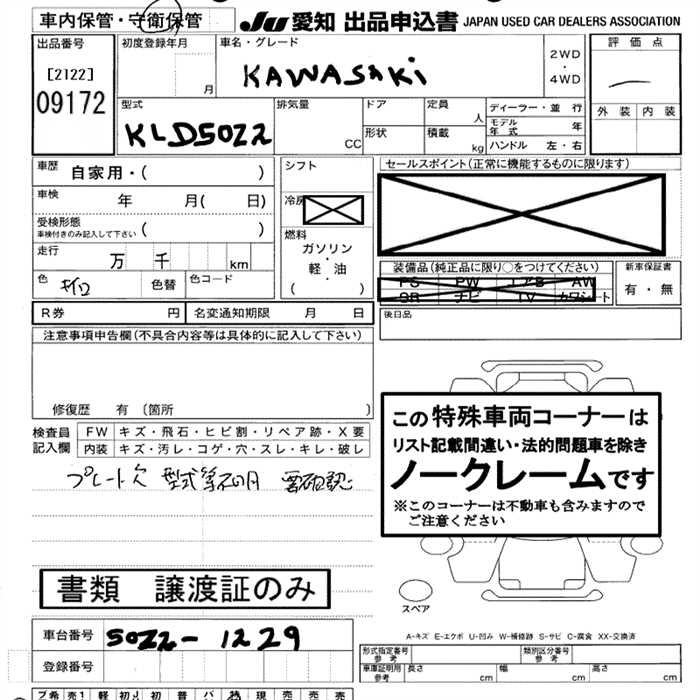 車内保管・守衛保管 JU 愛知 出品申込書 JAPAN USED CAR DEALERS ASSOCIATION
出品番号 初度登録年月 車名・グレード 評価点
[2122] 月 KAWASAKi 2WD・4WD
09172 外装 内装
型式 排気量 ドア 定員 人 ディーラー・並行
KLD5022 CC 形状 積載 kg モデル年式 年
ハンドル 左・右
車歴 自家用・( ) シフト セールスポイント(正常に機能するものに限ります)
車検 年 月( 日) 冷房
受検形態 車検付きのみ記入して下さい ( ) 燃料
走行 万 千 km ガソリン・軽・油 ( )
装備品(純正品に限り○をつけてください) 新車保証書
PS PW エアB AW 有・無
SR ナビ TV カワシート
色 色替 色コード
後日品
R券 円 名変通知期限 月 日
注意事項申告欄(不具合内容等は具体的に記入して下さい)
修復歴 有 (箇所 )
検査員記入欄 FW キズ・飛石・ヒビ割・リペア跡・X要
内装 キズ・汚レ・コゲ・穴・スレ・キレ・破レ
プレート欠 型式等不明 要確認
この特殊車両コーナーは
リスト記載間違い・法的問題車を除き
ノークレームです
※このコーナーは不動車も含みますので
ご注意ください
書類 譲渡証のみ
スペア
A-キズ E-エクボ U-凹み W-補修跡 S-サビ C-腐食 XX-交換済
車台番号 5022-1229
登録番号
形式指定番号 参考 類別区分番号 参考
車庫証明用 参考 長さ 幅 高さ